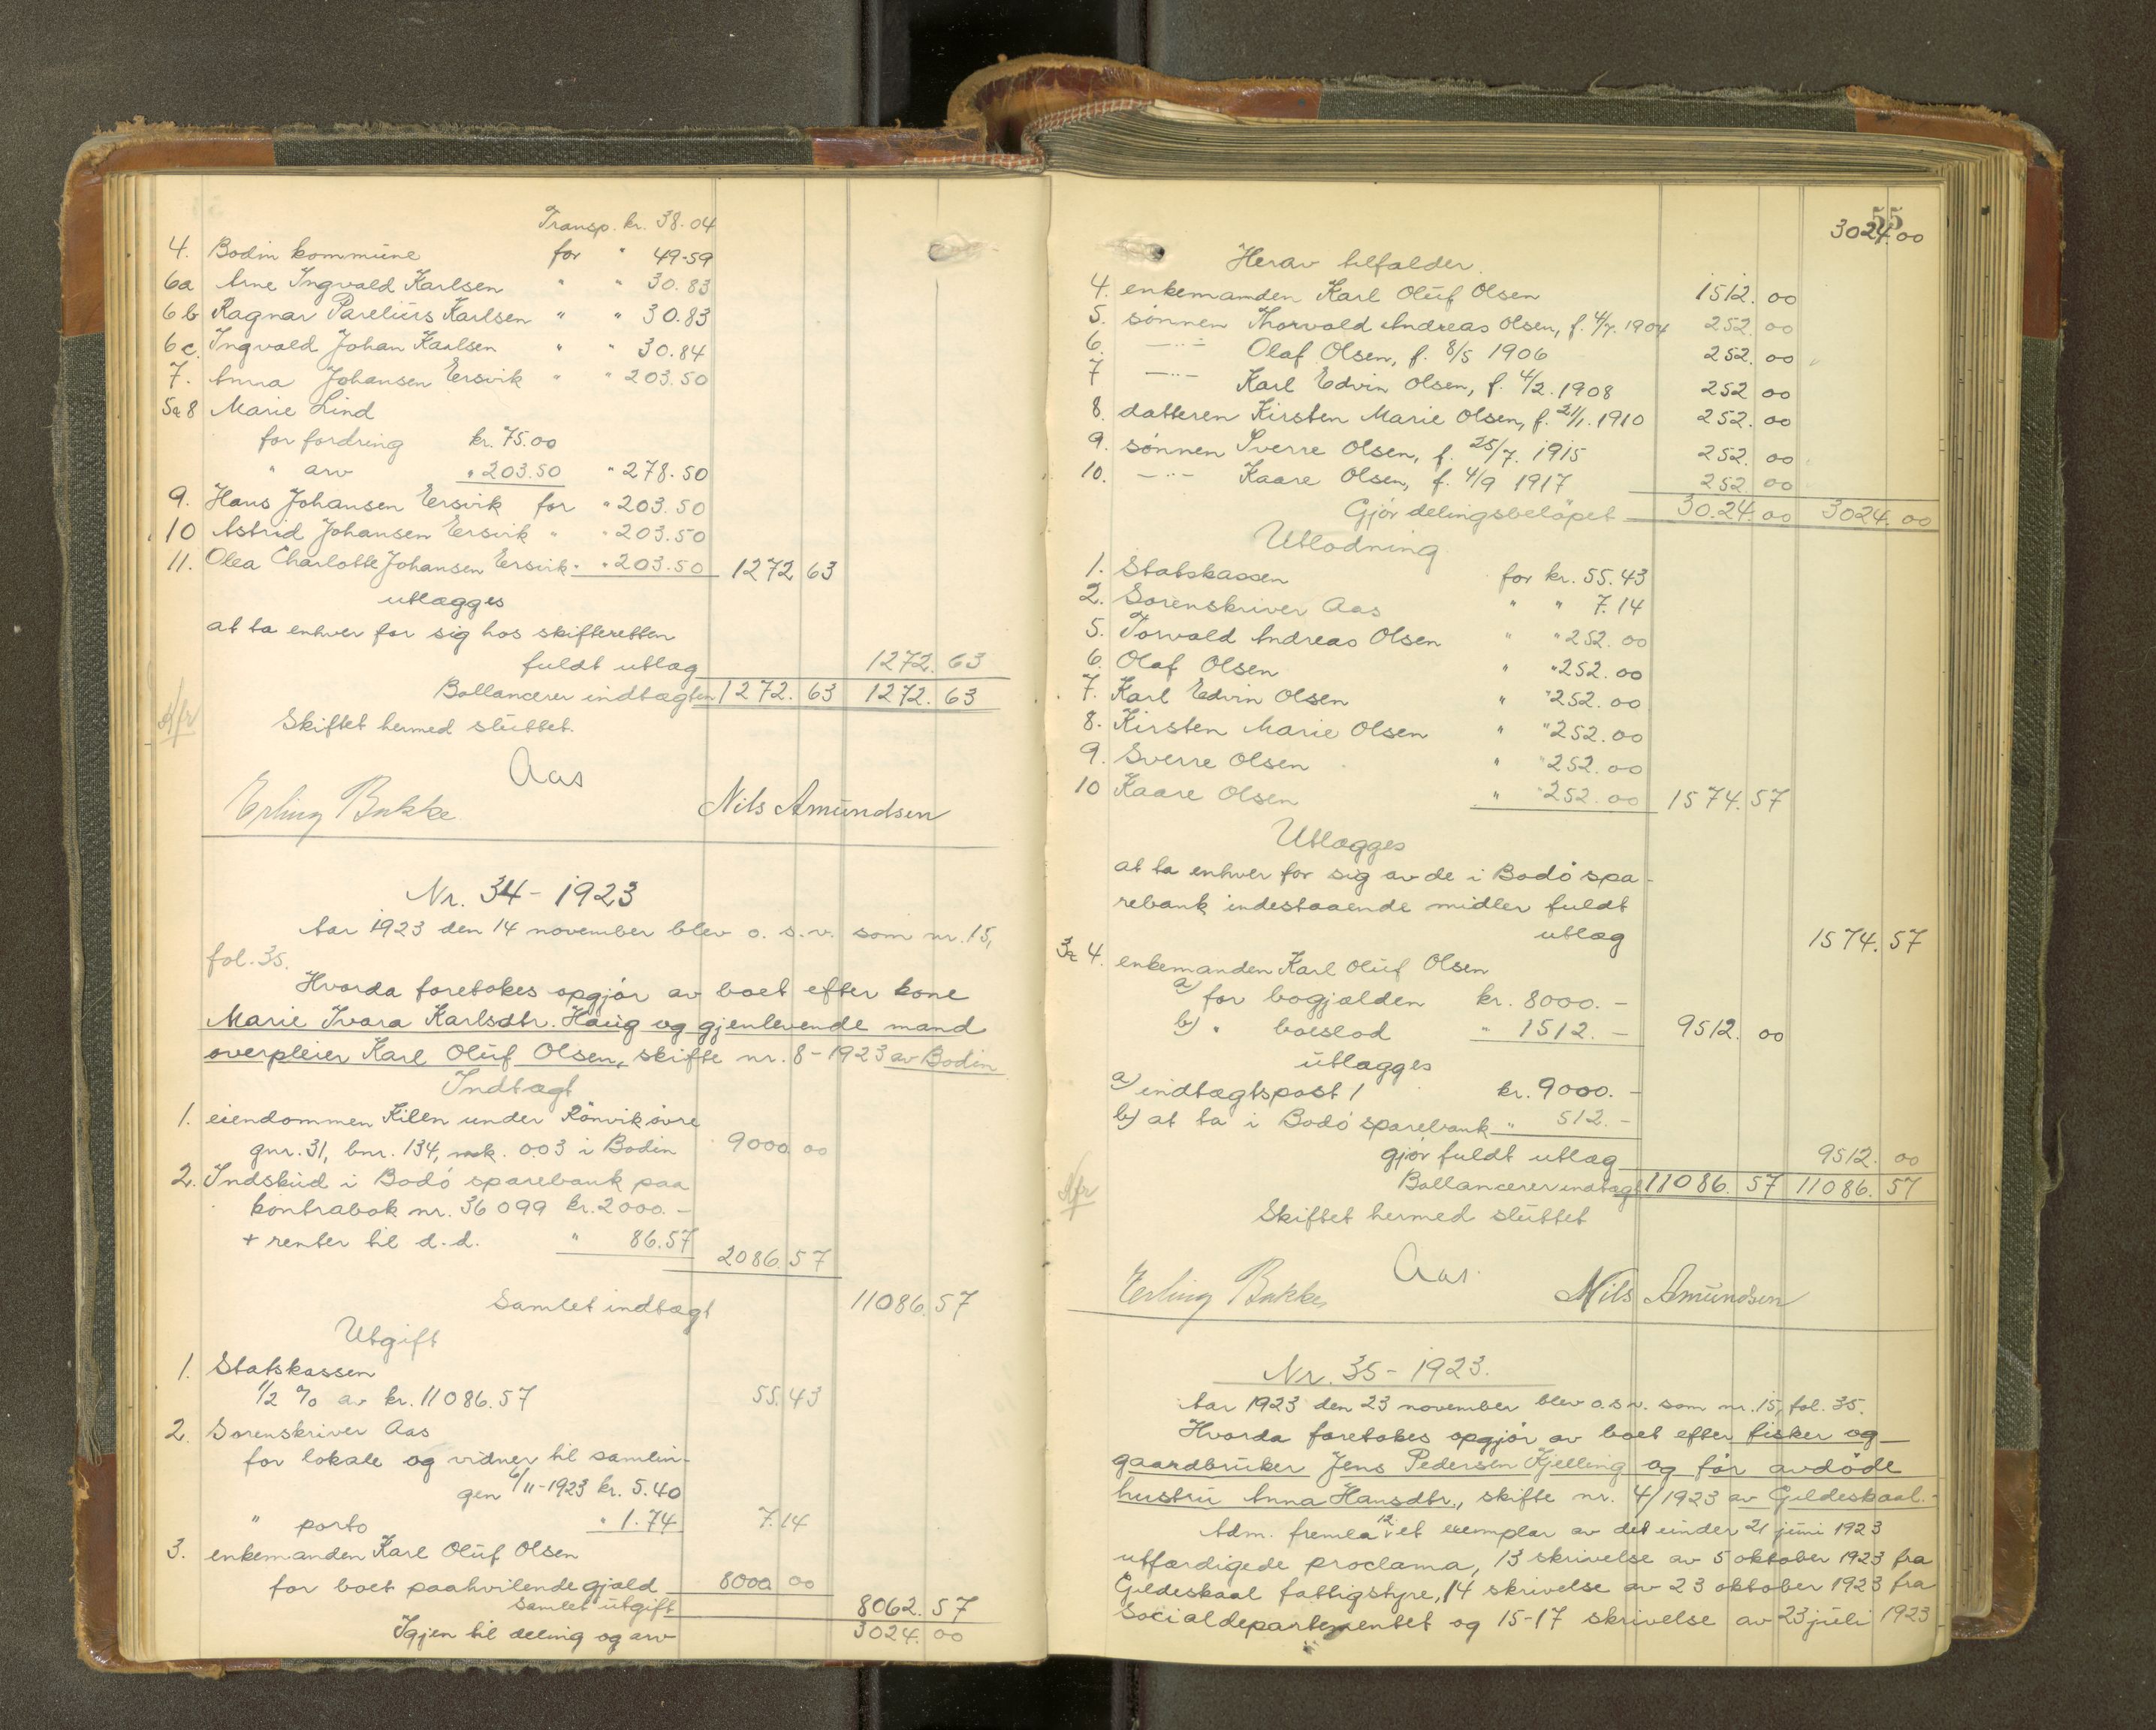 Transp. kr. 38.04
4. Bodin kommune for " 49.59
6a Arne Ingvald Karlsen " " 30.83
6b Ragnar Parelius Karlsen " " 30.83
6c. Ingvald Johan Karlsen " " 30.84
7. Anna Johansen Ersvik " " 203.50
5 & 8 Marie Lind
for fordring kr. 75.00
" arv " 203.50 " 278.50
9. Hans Johansen Ersvik for " 203.50
10 Astrid Johansen Ersvik " " 203.50
11. Olea Charlotte Johansen Ersvik " " 203.50 1272 63
utlægges
at ta enhver for sig hos skifteretten
fuldt utlæg 1272. 63
Ballancerer indtægten 1272. 63 1272. 63
Afr
Skiftet hermed sluttet.
Aas
Erling Bakke Nils Amundsen
Nr. 34 - 1923
Aar 1923 den 14 november blev o. s. v. som nr. 15,
fol. 35.
Hvorda foretokes opgjör av boet efter kone
Marie Ivara Karlsdtr. Haug og gjenlevende mand
overpleier Karl Oluf Olsen, skifte nr. 8 - 1923 av Bodin
Indtægt
1. eiendommen Kilen under Rönvik övre
gnr. 31, bnr. 134, msk. 0.03 i Bodin 9000 00
2. Indskud i Bodö sparebank paa
kontrabok nr. 36099 kr. 2000. -
+ renter til d.d. " 86.57 2086. 57
Samlet indtægt 11086. 57
Utgift
1. Statskassen
1/2 % av kr. 11086.57 55. 43
2. Sorenskriver Aas
for lokale og vidner til samlin-
gen 6/11-1923 kr. 5.40
" porto " 1.74 7.14
3. enkemanden Karl Oluf Olsen
for boet paahvilende gjæld 8000 00
Samlet utgift 8062. 57
Igjen til deling og arv 3024. 00
55
3024.00
Herav tilfalder.
4. enkemanden Karl Oluf Olsen 1512. 00
5. sönnen Thorvald Andreas Olsen, f. 4/7. 1904 252. 00
6. -"- Olaf Olsen, f. 8/5 1906 252. 00
7 -"- Karl Edvin Olsen, f. 4/2. 1908 252 00
8. datteren Kirsten Marie Olsen, f. 21/1. 1910 252. 00
9. sönnen Sverre Olsen, f. 25/7. 1915 252. 00
10. -"- Kaare Olsen, f. 4/9 1917 252 00
Gjör delingsbelöpet 30.24. 00 3024. 00
Utlodning
1. Statskassen for kr. 55.43
2. Sorenskriver Aas " " 7.14
5. Torvald Andreas Olsen " " 252. 00
6. Olaf Olsen " " 252. 00
7. Karl Edvin Olsen " " 252. 00
8. Kirsten Marie Olsen " " 252. 00
9. Sverre Olsen " " 252. 00
10 Kaare Olsen " " 252. 00 1574. 57
Utlægges
at ta enhver for sig av de i Bodö spa-
rebank indestaaende midler fuldt
utlæg 1574. 57
3 & 4. enkemanden Karl Oluf Olsen
a) for bogjælden kr. 8000. -
b) " boeslod " 1512. - 9512. 00
utlægges
a) indtægtspost 1 kr. 9000. -
b) at ta i Bodö sparebank " 512. -
gjör fuldt utlæg 9512. 00
Ballancerer indtægt 11086. 57 11086. 57
Afr
Skiftet hermed sluttet
Aas.
Erling Bakke Nils Amundsen
Nr. 35 - 1923.
Aar 1923 den 23 november blev o. s. v. som nr. 15, fol. 35.
Hvorda foretokes opgjör av boet efter fisker og
gaardbruker Jens Pedersen Kjelling og för avdöde
hustru Anna Hansdtr., skifte nr. 4/1923 av Gildeskaal. -
Adm. fremla 12 et exemplar av det under 21 juni 1923
utfærdigede proclama, 13 skrivelse av 5 oktober 1923 fra
Gildeskaal fattigstyre, 14 skrivelse av 23 oktober 1923 fra
Socialdepartementet og 15-17 skrivelse av 23 juli 1923